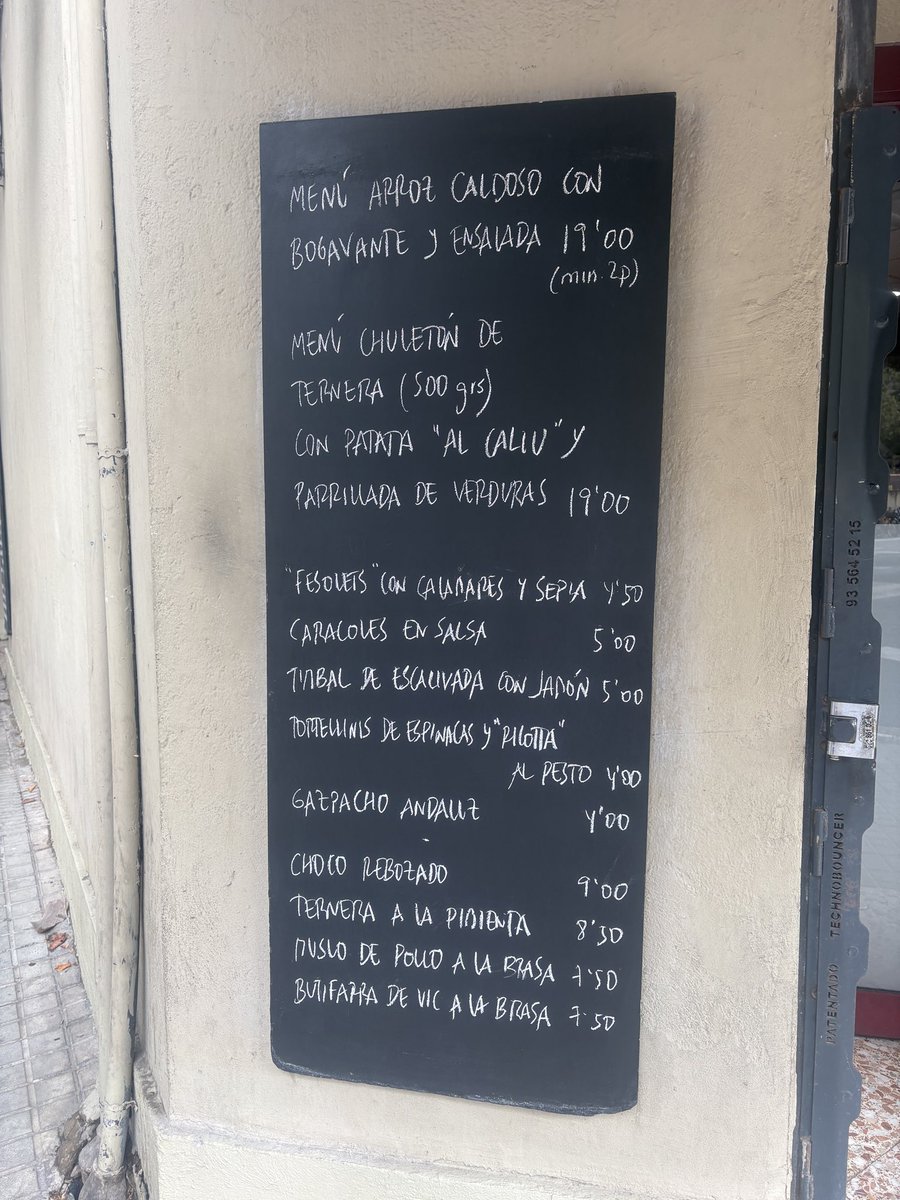 MENÚ ARROZ CALDOSO CON
BOGAVANTE Y ENSALADA 19'00
(min. 2p)
MENÚ CHULETÓN DE
TERNERA (500 grs)
CON PATATA "AL CALIU" Y
PARRILLADA DE VERDURAS 19'00
"FESOLETS" CON CALAMARES Y SEPIA 4'50
CARACOLES EN SALSA 5'00
TIMBAL DE ESCALIVADA CON JAMÓN 5'00
TORTELLINIS DE ESPINACAS Y "RICOTTA"
AL PESTO 4'00
GAZPACHO ANDALUZ 4'00
CHOCO REBOZADO 9'00
TERNERA A LA PIMIENTA 8'50
MUSLO DE POLLO A LA BRASA 7'50
BUTIFARRA DE VIC A LA BRASA 7'50
93 564 52 15
PATENTADO TECHNOBOUNCER